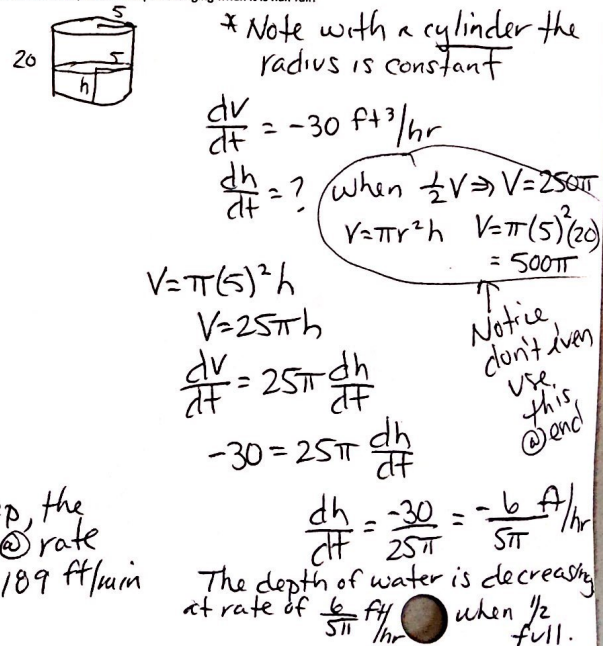 5
20
5
h
* Note with a cylinder the
radius is constant
dV/dt = -30 ft³/hr
dh/dt = ? when ½V ⇒ V=250π
V=πr²h V=π(5)²(20)
= 500π
Notice
don't even
use
this
@ end
V=π(5)²h
V=25πh
dV/dt = 25π dh/dt
-30 = 25π dh/dt
dh/dt = -30/25π = -6/5π ft/hr
p, the
@ rate
189 ft/min
The depth of water is decreasing
at rate of 6/5π ft/hr when ½
full.